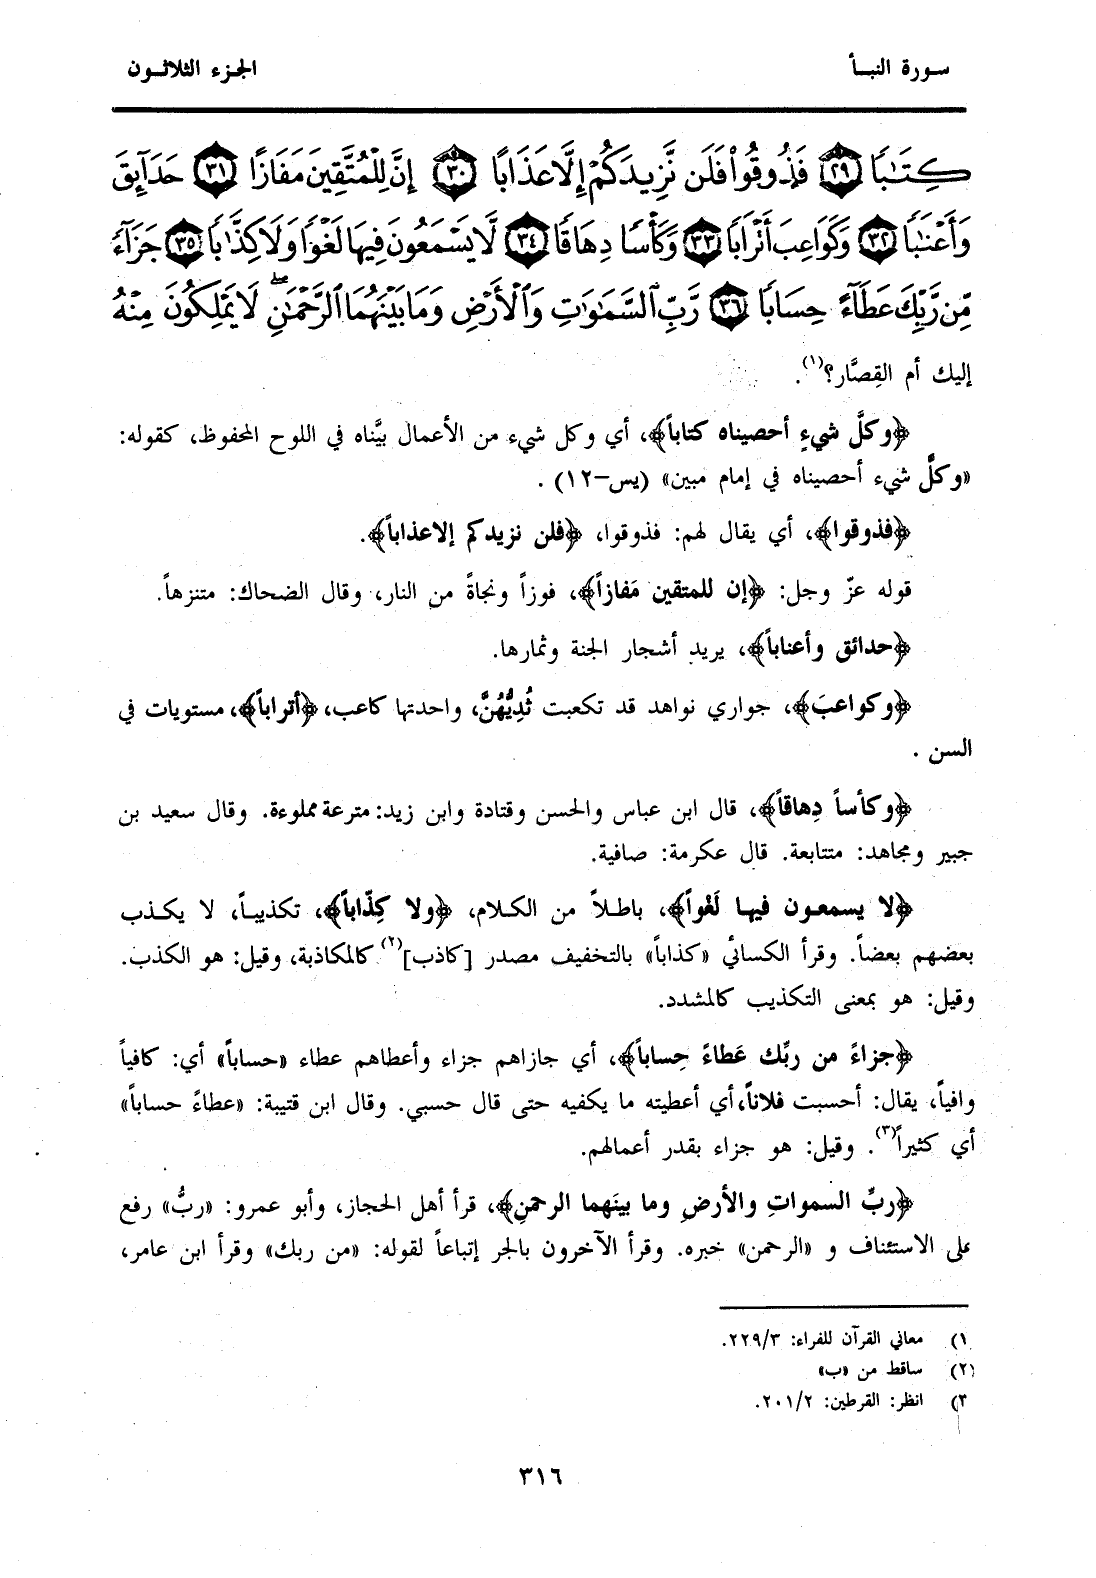 سورة النبأ
الجزء الثلاثون
كِتَـٰبًا ٢٩ فَذُوقُوا۟ فَلَن نَّزِيدَكُمْ إِلَّا عَذَابًا ٣٠ إِنَّ لِلْمُتَّقِينَ مَفَازًا ٣١ حَدَآئِقَ
وَأَعْنَـٰبًا ٣٢ وَكَوَاعِبَ أَتْرَابًا ٣٣ وَكَأْسًا دِهَاقًا ٣٤ لَّا يَسْمَعُونَ فِيهَا لَغْوًا وَلَا كِذَّٰبًا ٣٥ جَزَآءً
مِّن رَّبِّكَ عَطَآءً حِسَابًا ٣٦ رَّبِّ ٱلسَّمَـٰوَٰتِ وَٱلْأَرْضِ وَمَا بَيْنَهُمَا ٱلرَّحْمَـٰنِ ۖ لَا يَمْلِكُونَ مِنْهُ
إليك أم القِصَّار؟(١).
﴿وكلَّ شيءٍ أحصيناه كتاباً﴾، أي وكل شيء من الأعمال بيَّناه في اللوح المحفوظ، كقوله:
«وكلَّ شيء أحصيناه في إمام مبين» (يس–١٢) .
﴿فذوقوا﴾، أي يقال لهم: فذوقوا، ﴿فلن نزيدكم إلا عذاباً﴾.
قوله عزّ وجل: ﴿إن للمتقين مَفازاً﴾، فوزاً ونجاةً من النار، وقال الضحاك: متنزهاً.
﴿حدائق وأعناباً﴾، يريد أشجار الجنة وثمارها.
﴿وكواعبَ﴾، جواري نواهد قد تكعبت ثُدِيُّهُنَّ، واحدتها كاعب، ﴿أتراباً﴾، مستويات في
السن .
﴿وكأساً دِهاقاً﴾، قال ابن عباس والحسن وقتادة وابن زيد: مترعة مملوءة. وقال سعيد بن
جبير ومجاهد: متتابعة. قال عكرمة: صافية.
﴿لا يسمعون فيها لَغْواً﴾، باطلاً من الكلام، ﴿ولا كِذّاباً﴾، تكذيباً، لا يكذب
بعضهم بعضاً. وقرأ الكسائي «كذاباً» بالتخفيف مصدر [كاذب](٢) كالمكاذبة، وقيل: هو الكذب.
وقيل: هو بمعنى التكذيب كالمشدد.
﴿جزاءً من ربِّك عَطاءً حِساباً﴾، أي جازاهم جزاء وأعطاهم عطاء «حساباً» أي: كافياً
وافياً، يقال: أحسبت فلاناً، أي أعطيته ما يكفيه حتى قال حسبي. وقال ابن قتيبة: «عطاءً حساباً»
أي كثيراً(٣). وقيل: هو جزاء بقدر أعمالهم.
﴿ربِّ السمواتِ والأرضِ وما بينَهما الرحمنِ﴾، قرأ أهل الحجاز، وأبو عمرو: «ربُّ» رفع
على الاستئناف و «الرحمن» خبره. وقرأ الآخرون بالجر إتباعاً لقوله: «من ربك» وقرأ ابن عامر،
١) معاني القرآن للفراء: ٢٢٩/٣.
(٢) ساقط من «ب»
٣) انظر: القرطين: ٢٠١/٢.
٣١٦